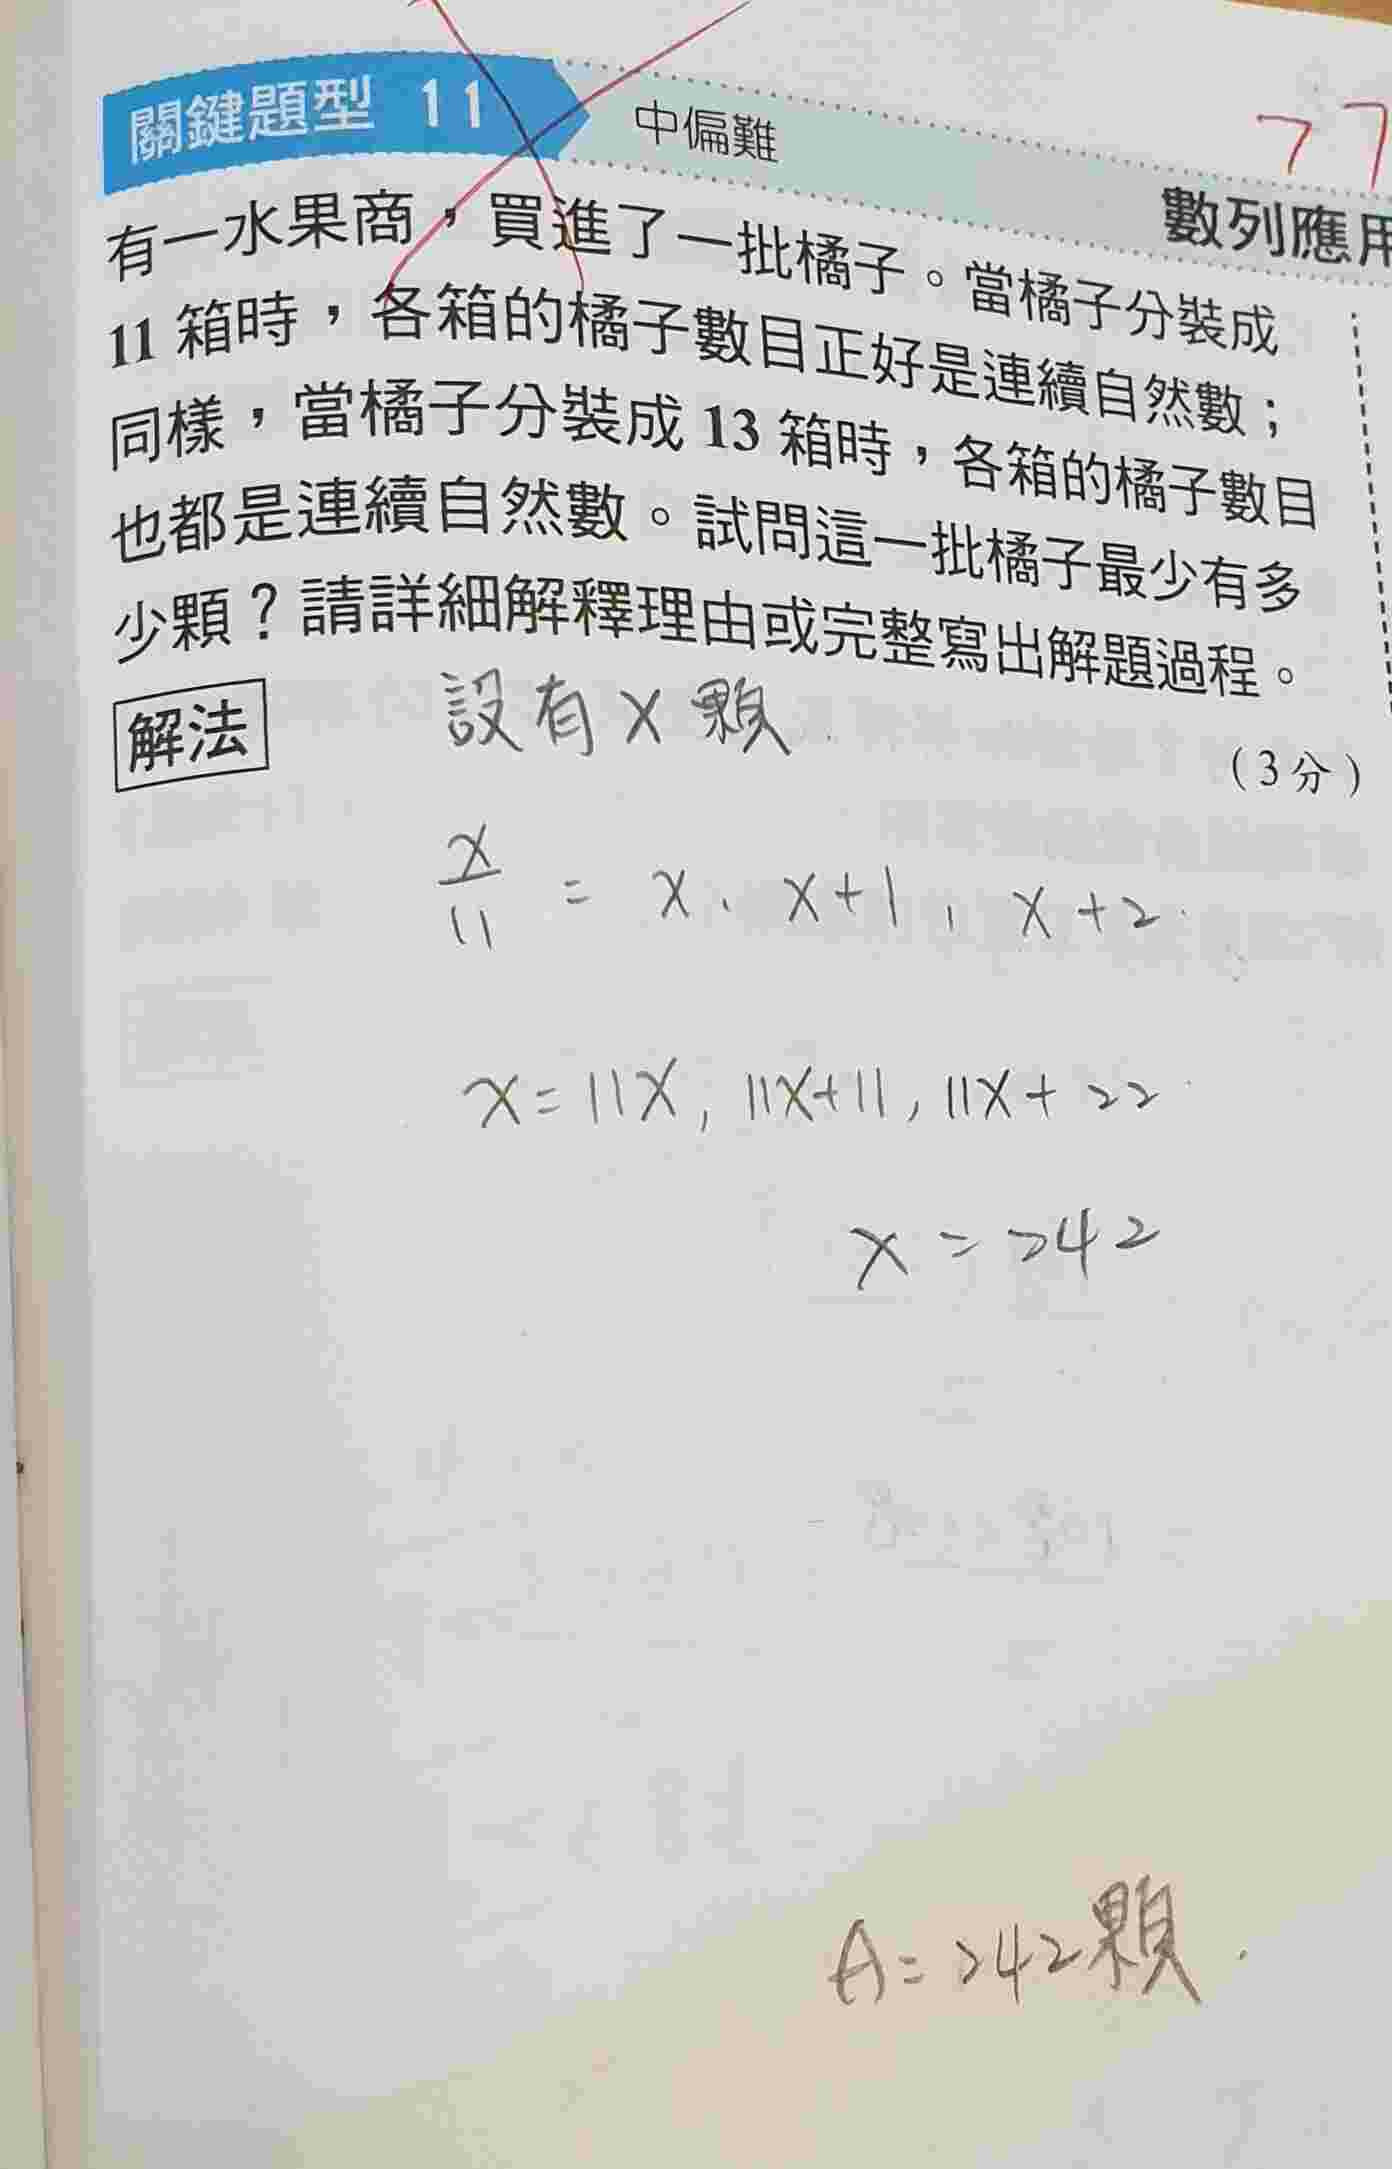 關鍵題型 11 中偏難
77
數列應用
有一水果商,買進了一批橘子。當橘子分裝成
11 箱時,各箱的橘子數目正好是連續自然數;
同樣,當橘子分裝成 13 箱時,各箱的橘子數目
也都是連續自然數。試問這一批橘子最少有多
少顆?請詳細解釋理由或完整寫出解題過程。
(3分)
解法 設有 x 顆
x/11 = x、x+1, x+2
x = 11x, 11x+11, 11x+22
x = 242
A = 242顆.